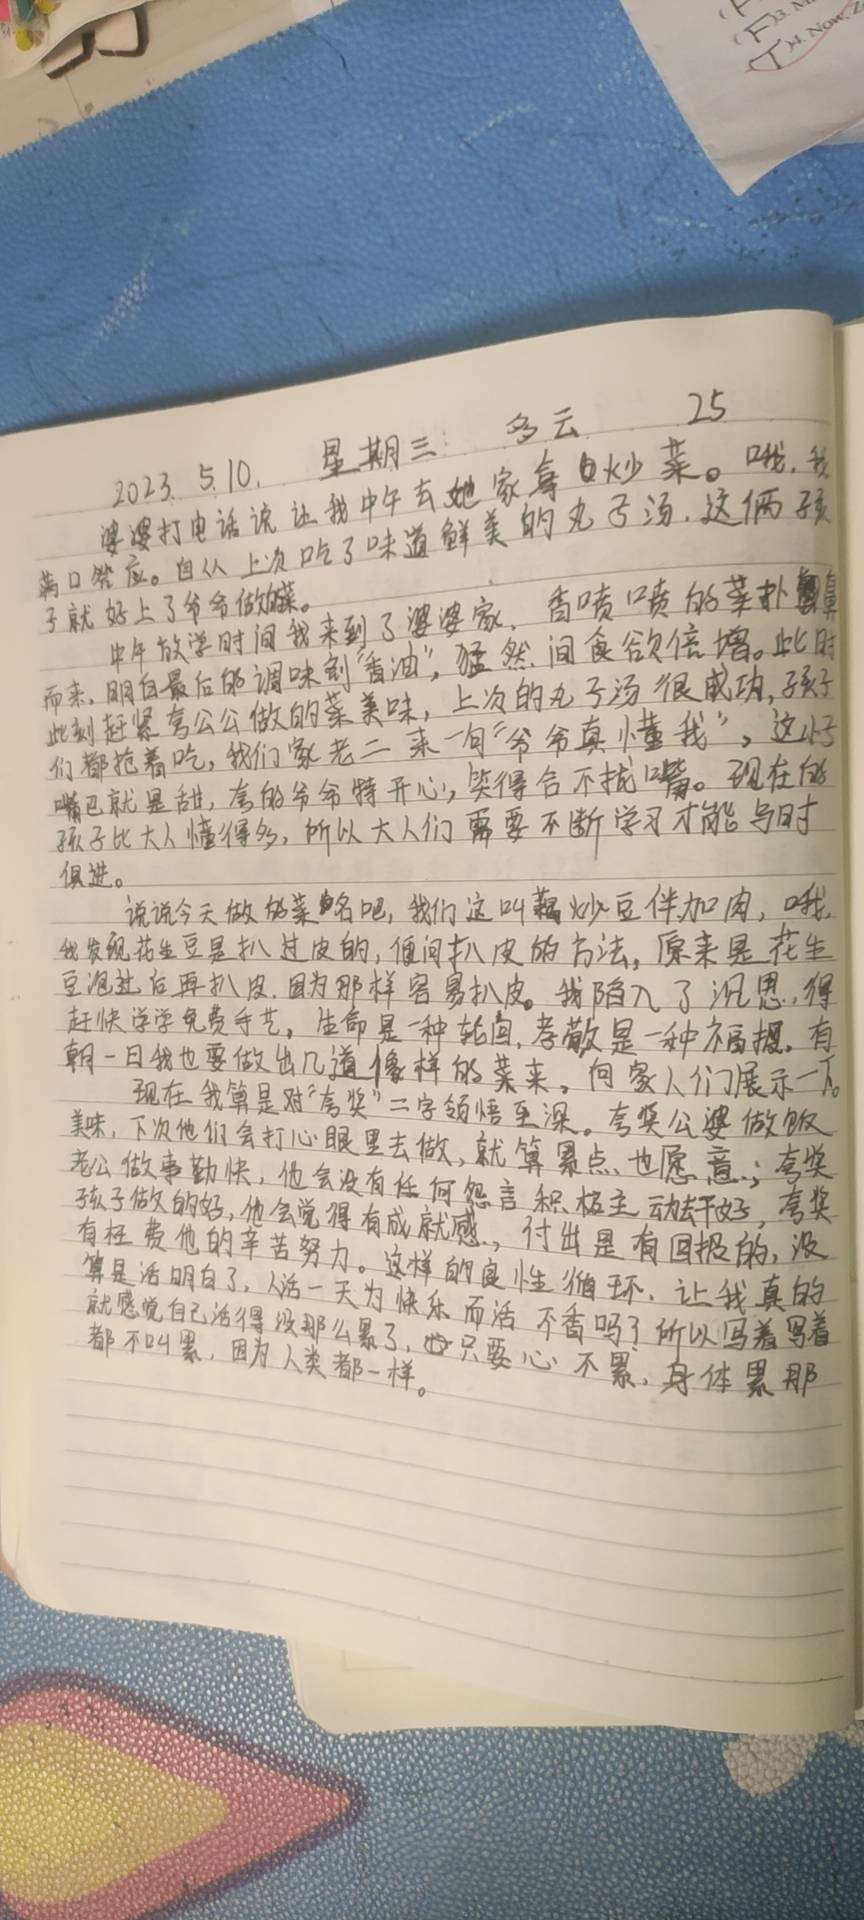 (F
(F)3. M
(T)14. Now, Z
2023. 5.10. 星期三 多云 25
婆婆打电话说让我中午去她家拿炒菜。哦，我
满口答应。自从上次吃了味道鲜美的丸子汤，这俩孩
子就好上了爷爷做的菜。
中午放学时间我来到了婆婆家，香喷喷的菜扑鼻
而来，明白最后的调味剂“香油”，猛然间食欲倍增。此时
此刻赶紧夸公公做的菜美味，上次的丸子汤很成功，孩子
们都抢着吃，我们家老二来一句“爷爷真懂我”，这小子
嘴巴就是甜，夸的爷爷特开心，笑得合不拢嘴。现在的
孩子比大人懂得多，所以大人们需要不断学习才能与时
俱进。
说说今天做的菜名吧，我们这叫藕炒豆伴加肉，哦，
我发现花生豆是扒过皮的，便问扒皮的方法，原来是花生
豆泡过后再扒皮，因为那样容易扒皮。我陷入了沉思，得
赶快学学免费手艺，生命是一种轮回，孝敬是一种福报，有
朝一日我也要做出几道像样的菜来，向家人们展示一下。
现在我算是对“夸奖”二字领悟至深。夸奖公婆做饭
美味，下次他们会打心眼里去做，就算累点也愿意；夸奖
老公做事勤快，他会没有任何怨言积极主动去干好，夸奖
孩子做的好，他会觉得有成就感，付出是有回报的，没
有枉费他的辛苦努力。这样的良性循环，让我真的
算是活明白了，人活一天为快乐而活不香吗？所以写着写着
就感觉自己活得没那么累了，只要心不累，身体累那
都不叫累，因为人类都一样。